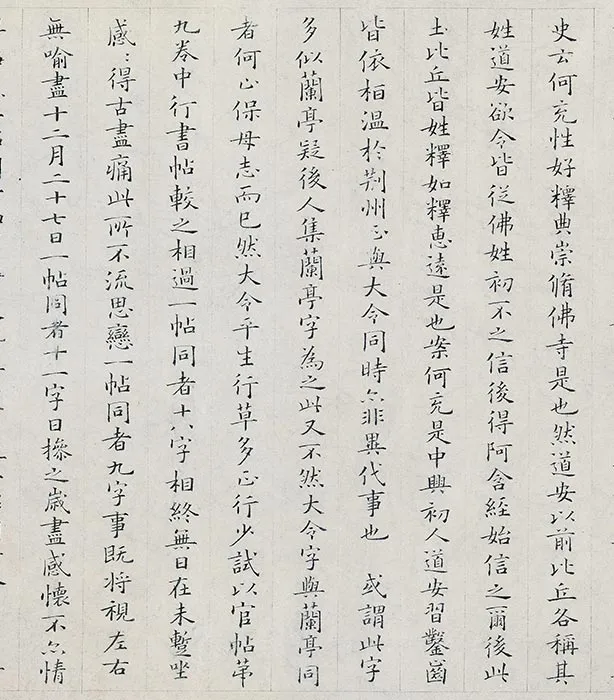 史云何充性好釋典崇脩佛寺是也然道安以前比丘各稱其
姓道安欲令皆從佛姓初不之信後得阿含經始信之爾後此
土比丘皆姓釋如釋惠遠是也案何充是中興初人道安習鑿齒
皆依桓溫於荆州正與大令同時亦非異代事也 或謂此字
多似蘭亭疑後人集蘭亭字為之此又不然大令字與蘭亭同
者何止保母志而已然大令平生行草多正行少試以官帖第
九卷中行書帖較之相過一帖同者十八字相終無日在未蹔坐
感〻得古盡痛此所不流思戀一帖同者九字事既將視左右
無喻盡十二月二十七日一帖同者十一字日撡之歲盡感懷不亦情